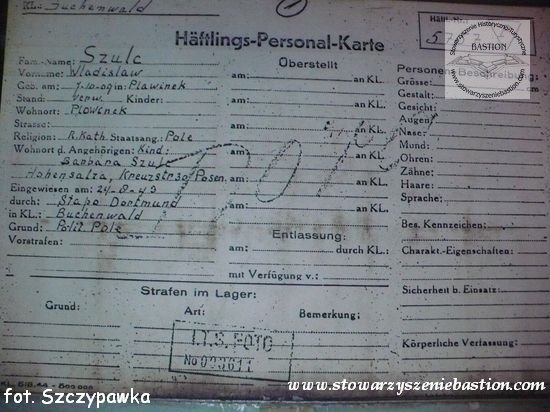 KL.: Buchenwald
Häftl.-Nr.:
Stowarzyszenie Historyczno-Turystyczne
BASTION
www.stowarzyszeniebastion.com
Häftlings-Personal-Karte
Fam.-Name: Szulc
Vorname: Wladislaw
Geb. am: 7.10.09 in Plawinek
Stand: verw. Kinder:
Wohnort: Plowinek
Strasse:
Religion: R. Kath. Staatsang: Pole
Wohnort d. Angehörigen: Kind:
Barbara Szulc
Hohensalza, Kreuzstr 30 Posen
Eingewiesen am: 24-8-43
durch: Stapo Dortmund
in KL.: Buchenwald
Grund: Polit Pole
Vorstrafen:
Überstellt
am: an KL.
am: an KL.
am: an KL.
am: an KL.
am: an KL.
am: an KL.
Entlassung:
am: durch KL.:
mit Verfügung v.:
Personen-Beschreibung:
Grösse:
Gestalt:
Gesicht:
Augen:
Nase:
Mund:
Ohren:
Zähne:
Haare:
Sprache:
Bes. Kennzeichen:
Charakt.-Eigenschaften:
Sicherheit b. Einsatz:
Körperliche Verfassung:
Strafen im Lager:
Grund: Art: Bemerkung:
I.T.S. FOTO
No
fot. Szczypawka
www.stowarzyszeniebastion.com